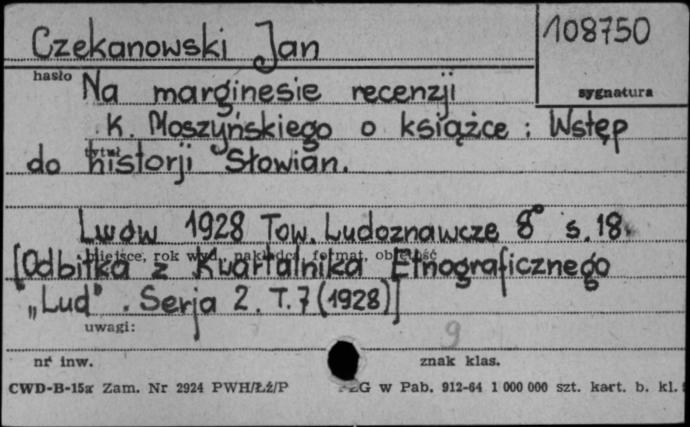 Czekanowski Jan
108750
hasło
sygnatura
Na marginesie recenzji
K. Moszyńskiego o książce : Wstęp
tytuł
do historji Słowian.
Lwów 1928 Tow. Ludoznawcze 8° s. 18.
miejsce, rok wyd., nakładca, format, objętość
[Odbitka z Kwartalnika Etnograficznego
„Lud" . Serja 2. T. 7 (1928)]
uwagi:
9
nr inw.
znak klas.
CWD-B-15x Zam. Nr 2924 PWH/Łź/P
w Pab. 912-64 1 000 000 szt. kart. b. kl.